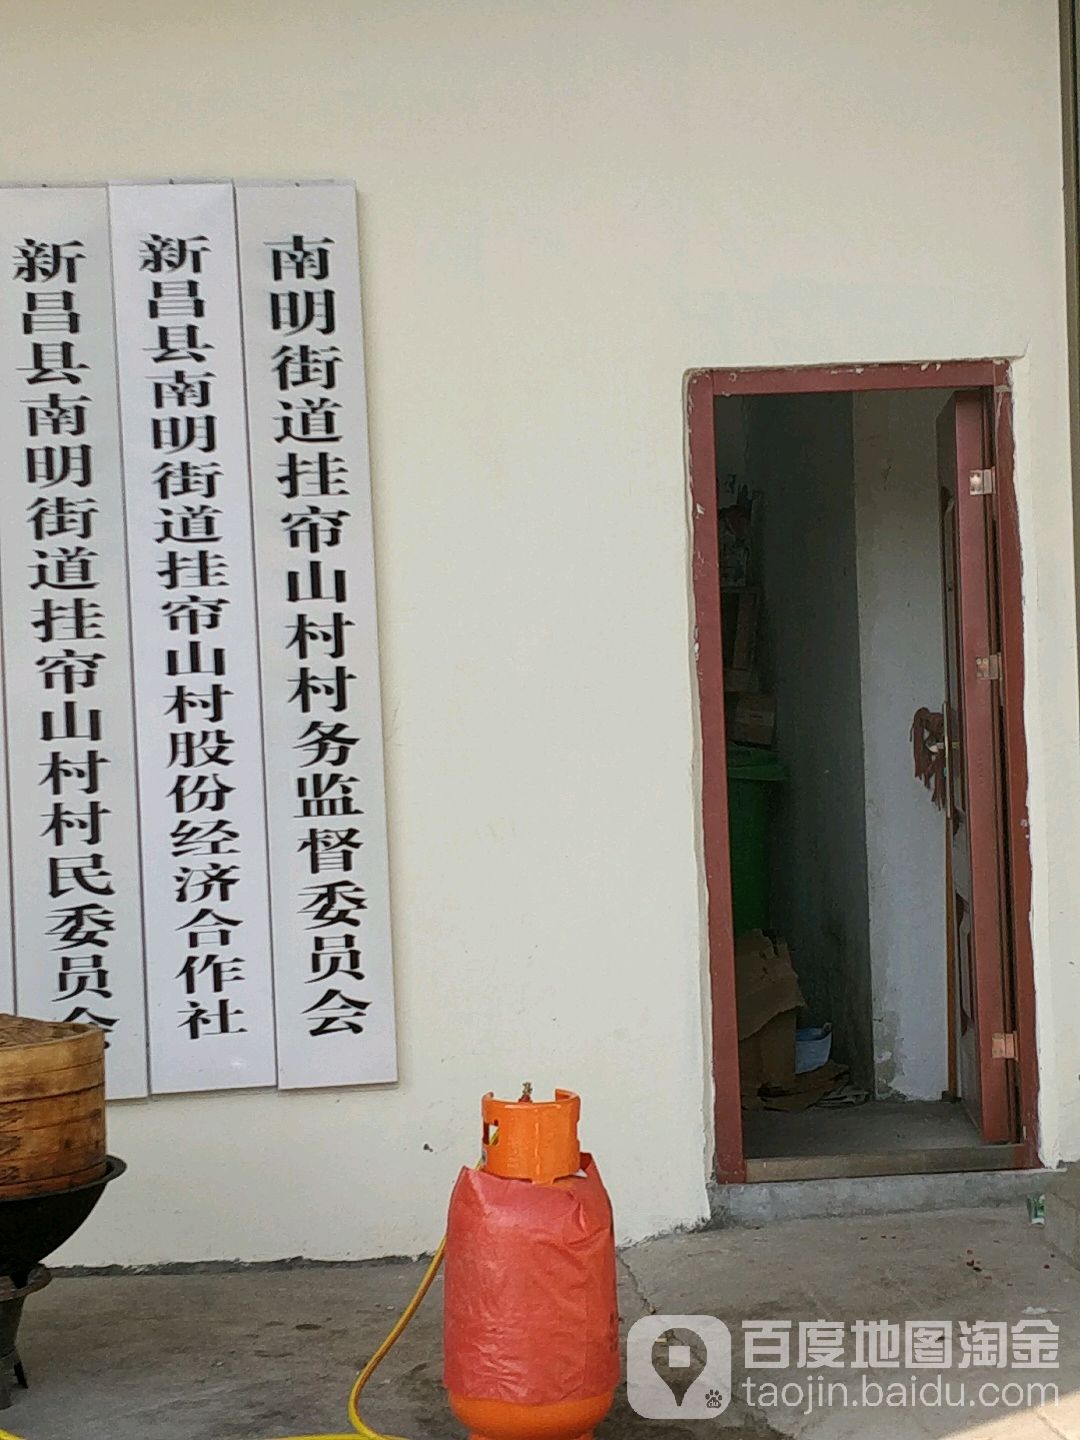 新昌县南明街道挂帘山村村民委员会
新昌县南明街道挂帘山村股份经济合作社
南明街道挂帘山村村务监督委员会
百度地图淘金
taojin.baidu.com
du